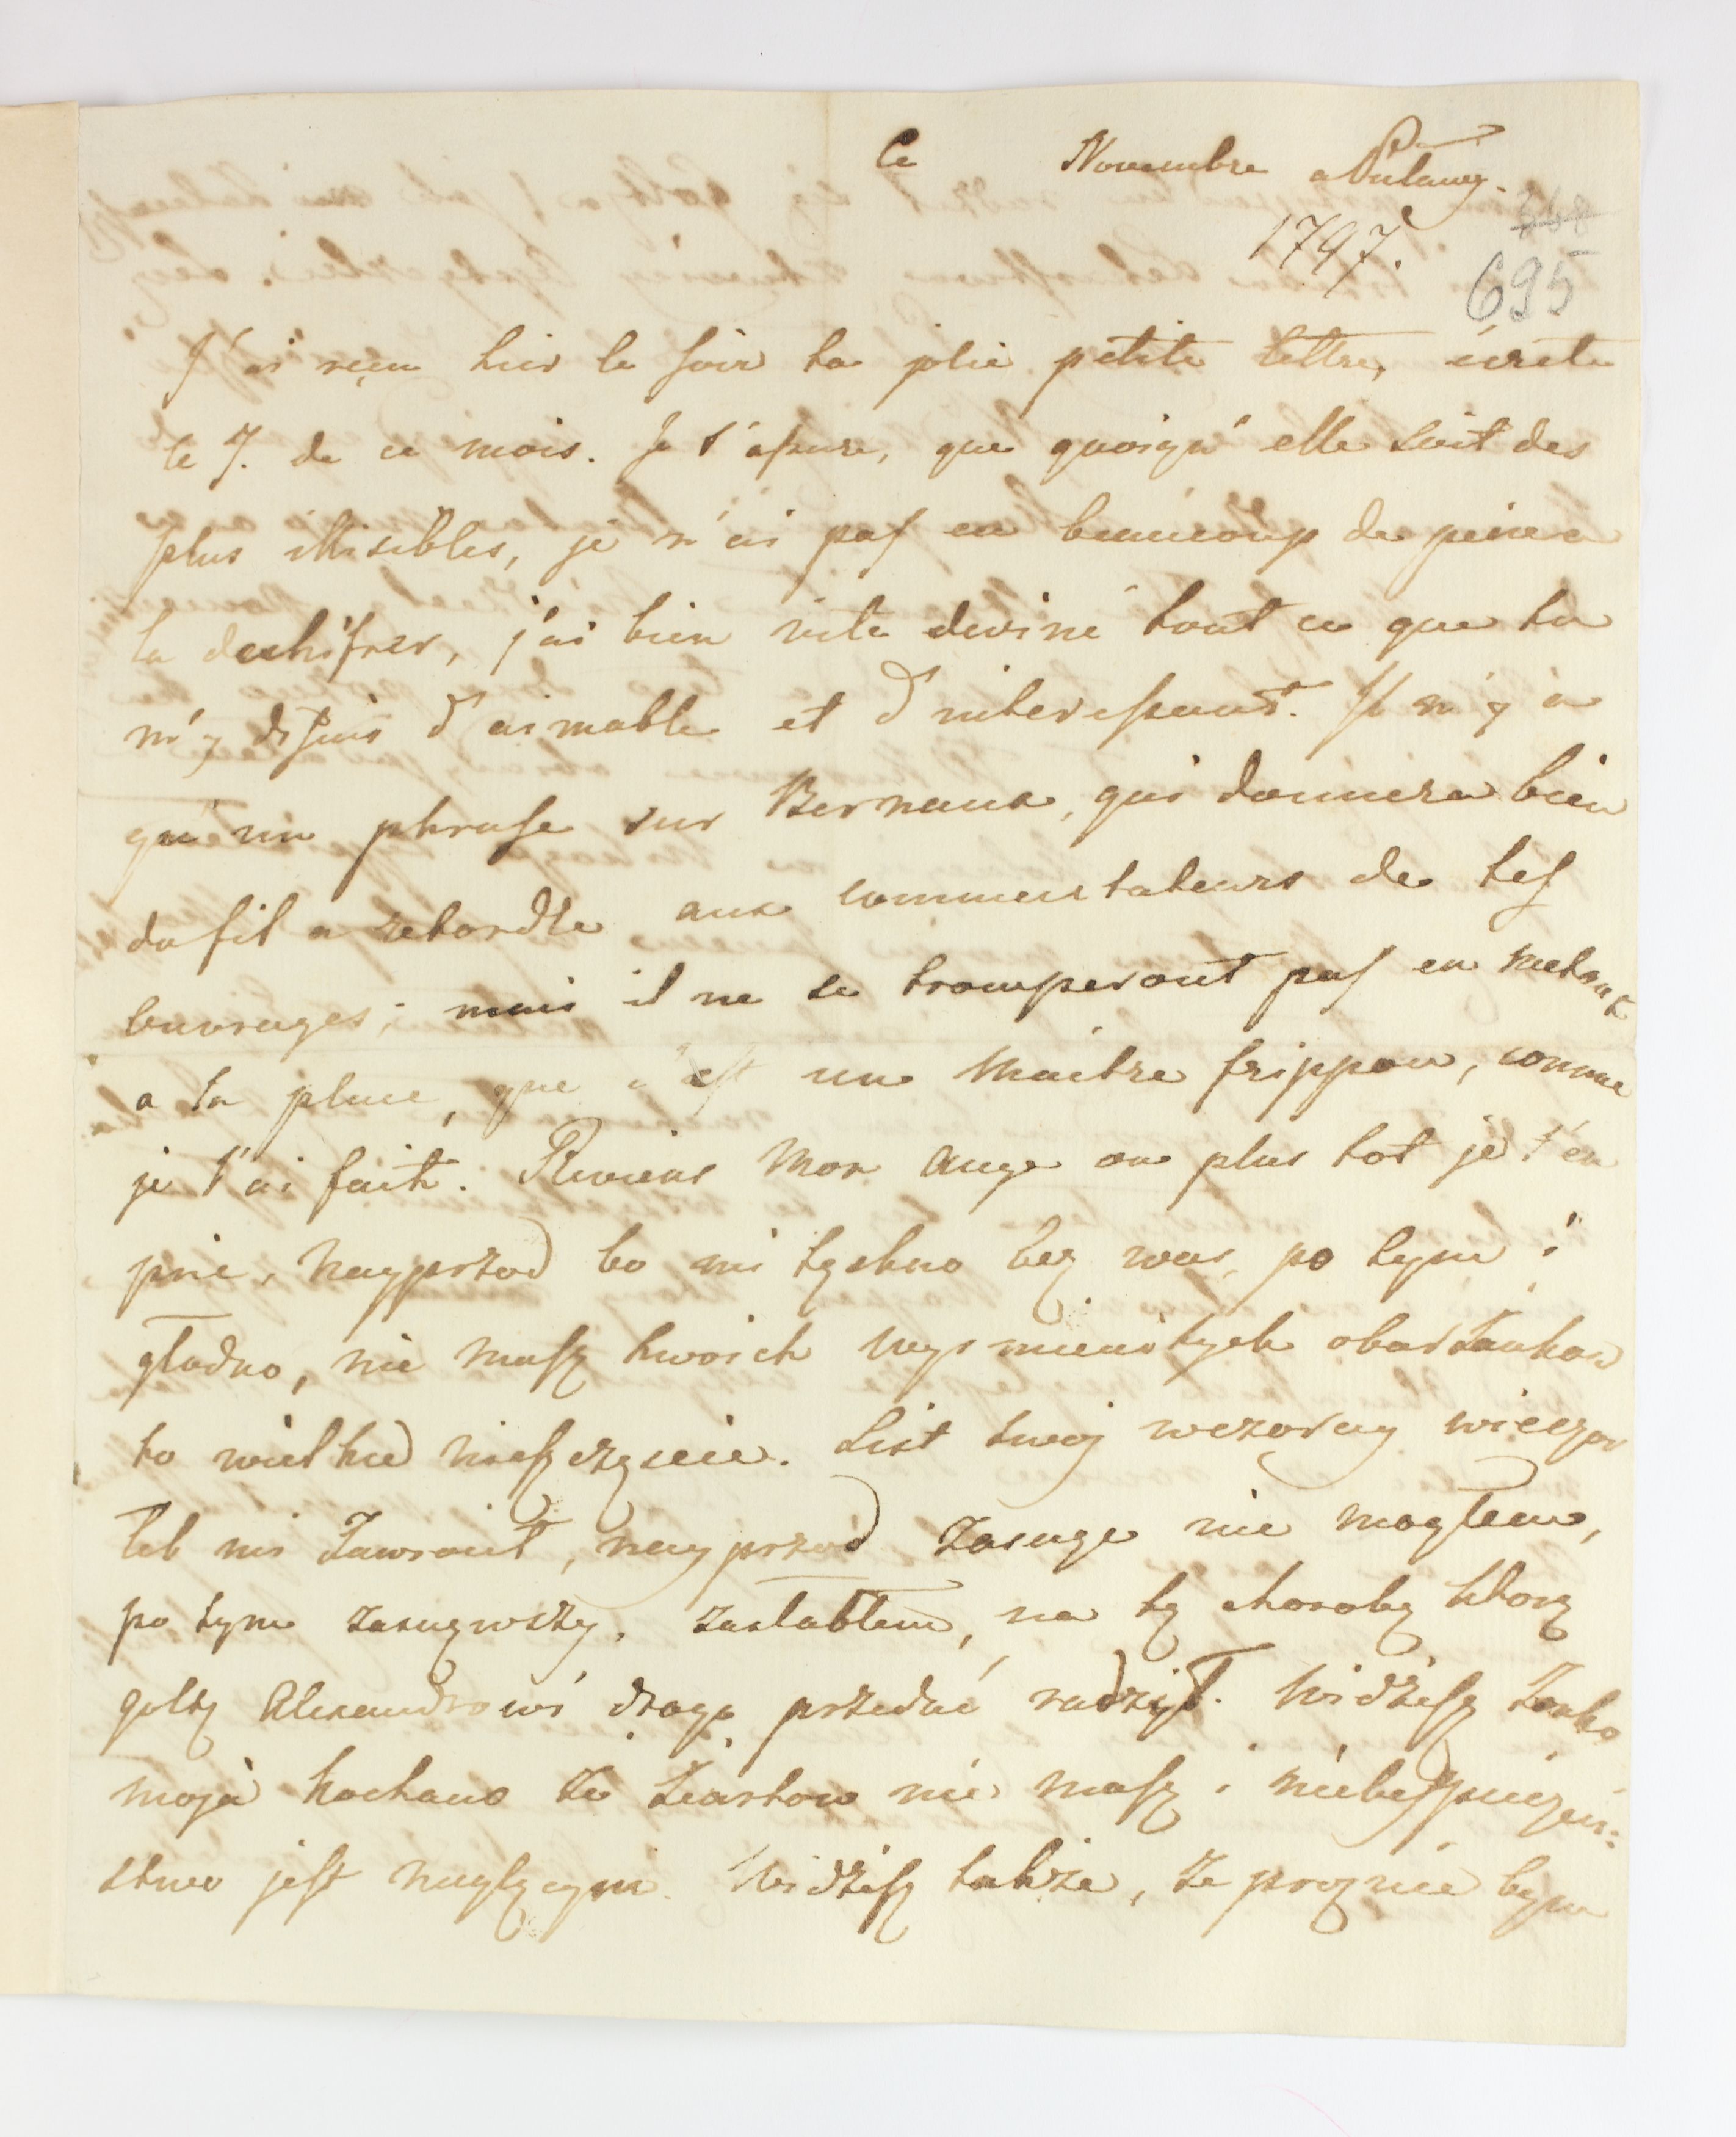 Ce Novembre a Pulawy.
1797.
368
695
J'ai reçu hier le soir ta jolie petite lettre, écrite
le 7. de ce mois. Je t'assure, que quoiqu'elle soit des
plus illisibles, je n'ai pas eu beaucoup de peine a
la dechifrer, j'ai bien vite deviné tout ce que tu
m'y disais d'aimable et d'interessant. Il n'y a
qu'un phrase sur Bernaux, qui donnera bien
du fil a retordre aux commentateurs de tes
ouvrages; mais il ne se tromperont pas en metant
a ta place, que c'est un maitre frippon, comme
je t'ai fait. Reviens mon ange au plus tot je t'en
prie, nayprzod bo mi tęskno bez was, po tym i
głodno, nie masz twoich wysmienitych obarzankow
to wielkie nieszczęscie. List twoj wczorayszy wieczor
łeb mi zawrocił, nayprzod zasnąc nie mogłem,
po tym zasnąwszy, zasłabłem, na tę chorobę ktorą
goltz Alexandrowi drogo przedać radził. Widzisz Zonko
moja kochana że żartow nie masz i niebespieczen:
stwo jest naglącym. Widzisz także, że proznie bym